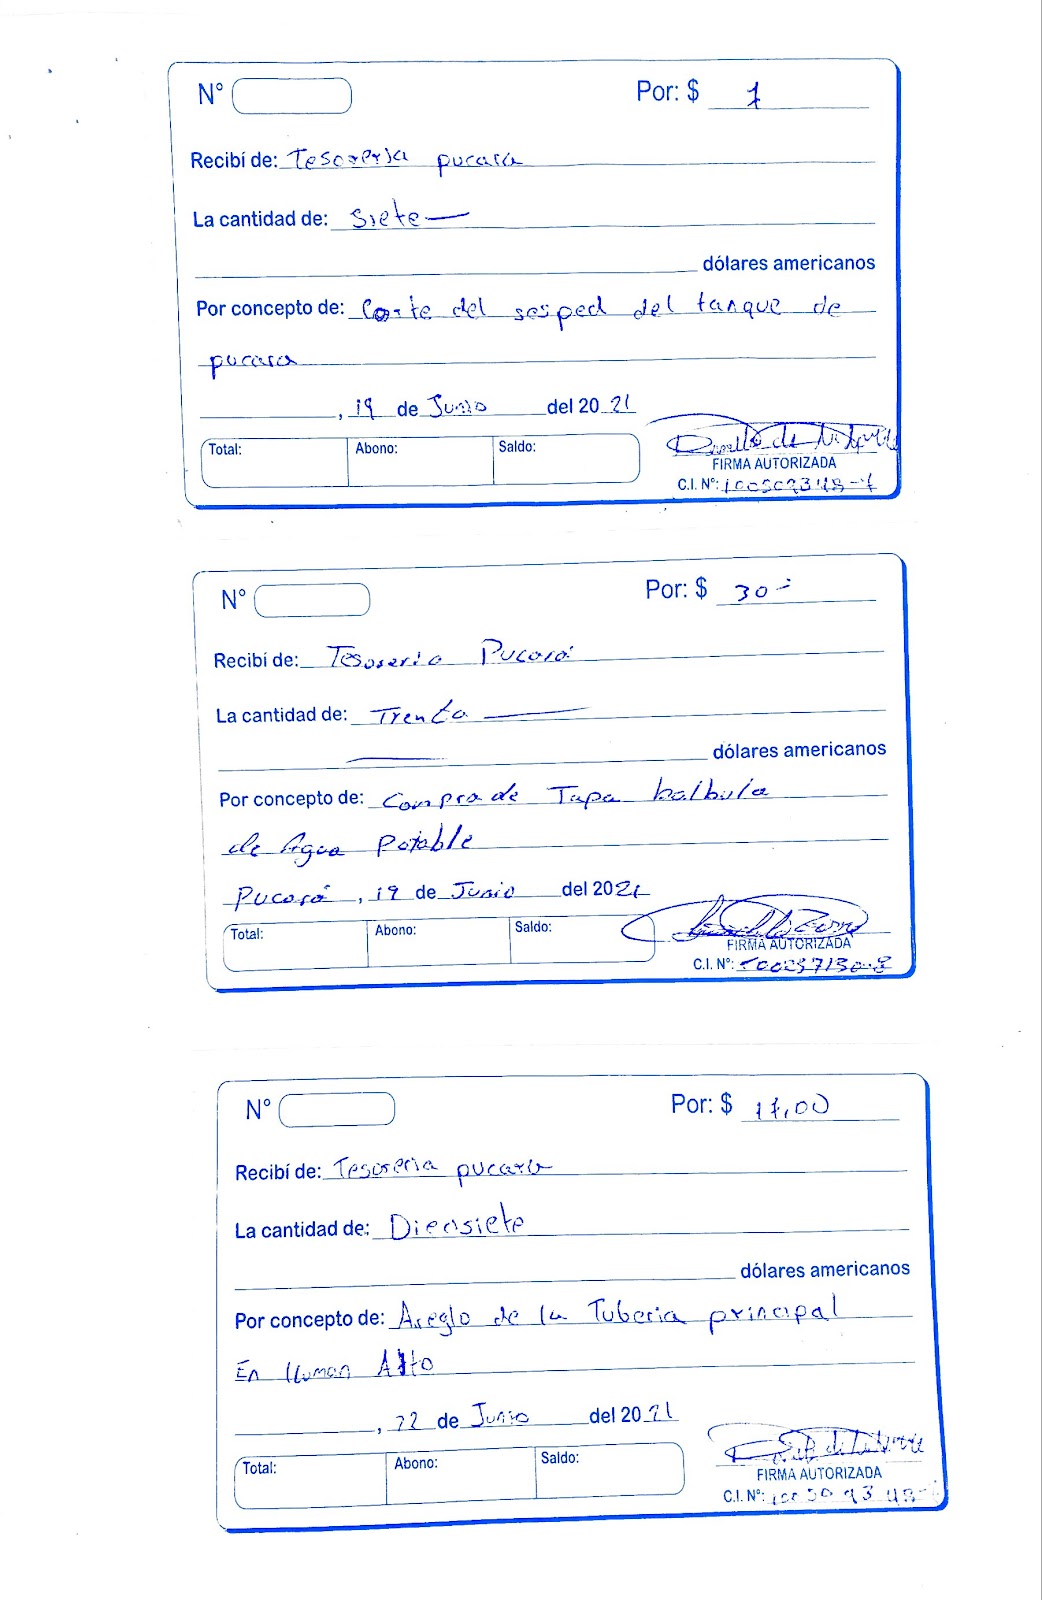 N° Por: $ 7
Recibí de: Tesoreria pucara
La cantidad de: Siete
dólares americanos
Por concepto de: Corte del sesped del tanque de
pucara
, 19 de Junio del 2021
Total: Abono: Saldo:
FIRMA AUTORIZADA
C.I. N°:
N° Por: $ 30
Recibí de: Tesoreria Pucará
La cantidad de: Trenta
dólares americanos
Por concepto de: Compra de Tapa balbula
de Agua Potable
Pucará, 19 de Junio del 2021
Total: Abono: Saldo:
FIRMA AUTORIZADA
C.I. N°:
N° Por: $ 17,00
Recibí de: Tesoreria pucara
La cantidad de: Diensiete
dólares americanos
Por concepto de: Areglo de la Tuberia principal
En Iluman Alto
, 22 de Junio del 2021
Total: Abono: Saldo:
FIRMA AUTORIZADA
C.I. N°: